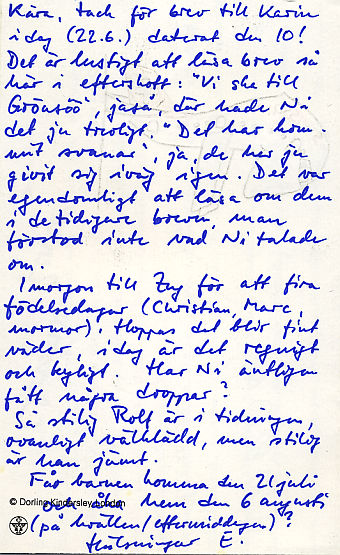 Kära, tack för brev till Karin
idag (22.6.) daterat den 10!
Det är lustigt att läsa brev så
här i efterskott: "Vi ska till
Grönsöö", jaså, där hade Ni
det ju trevligt. "Det har kom-
mit svanar", ja, de har ju
givit sig iväg igen. Det var
egendomligt att läsa om dem
i de tidigare breven, man
förstod inte vad Ni talade
om.
I morgon till Zug för att fira
födelsedagar (Christian, Marc,
mormor). Hoppas det blir fint
väder, idag är det regnigt
och kyligt. Har Ni äntligen
fått några droppar?
Så stilig Rolf är i tidningen,
ovanligt välklädd, men stilig
är han jämt.
Får barnen komma den 21 juli
och åka hem den 6 augusti
© Dorling Kindersley London
(på kvällen/eftermiddagen)?
Hälsningar E.